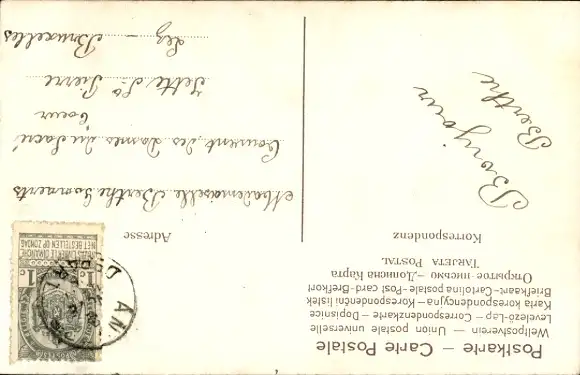 Postkarte – Carte Postale
Weltpostverein – Union postale universelle
Levelező-Lap – Correspondenzkarte – Dopisnice
Karta korespondencyjna – Korespondenční lístek
Briefkaart – Cartolina postale – Post card – Brefkort
Открытое письмо – Дописна Карта
TARJETA POSTAL
Korrespondenz
Bonjour
Berthe
Adresse
Mademoiselle Berthe
Couvent des Dames du Sacré
Coeur
Jette St Pierre
Lez – Bruxelles
1c 1c
NE PAS LIVRER LE DIMANCHE
NIET BESTELLEN OP ZONDAG